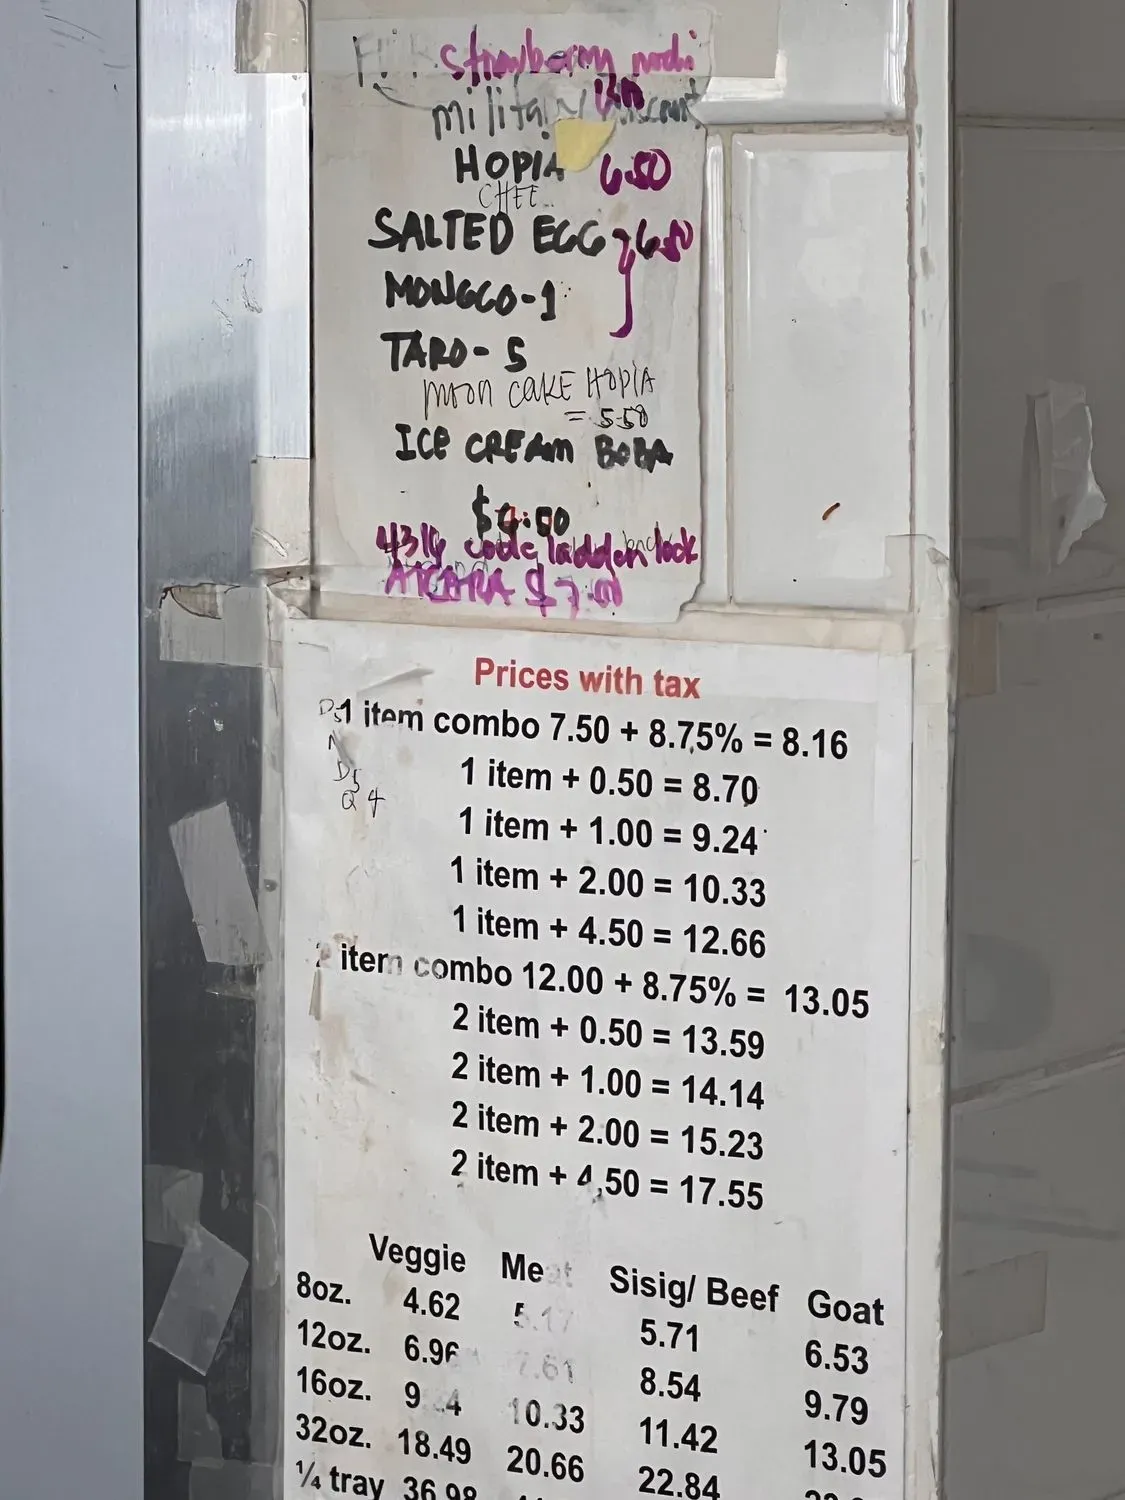 strawberry mochi
military discount
HOPIA 6.50
CHEE..
SALTED EGG 6.50
MONGGO-1
TARO-5
MOON CAKE HOPIA
= 5.50
ICE CREAM BOBA
code ladder lock
ATCHARA $7.00
Prices with tax
1 item combo 7.50 + 8.75% = 8.16
1 item + 0.50 = 8.70
1 item + 1.00 = 9.24
D5
Q 4
1 item + 2.00 = 10.33
1 item + 4.50 = 12.66
2 item combo 12.00 + 8.75% = 13.05
2 item + 0.50 = 13.59
2 item + 1.00 = 14.14
2 item + 2.00 = 15.23
2 item + 4.50 = 17.55
Veggie Meat Sisig/ Beef Goat
8oz. 4.62 5.17 5.71 6.53
12oz. 6.96 7.61 8.54 9.79
16oz. 10.33 11.42 13.05
32oz. 18.49 20.66 22.84
1/4 tray 36.98